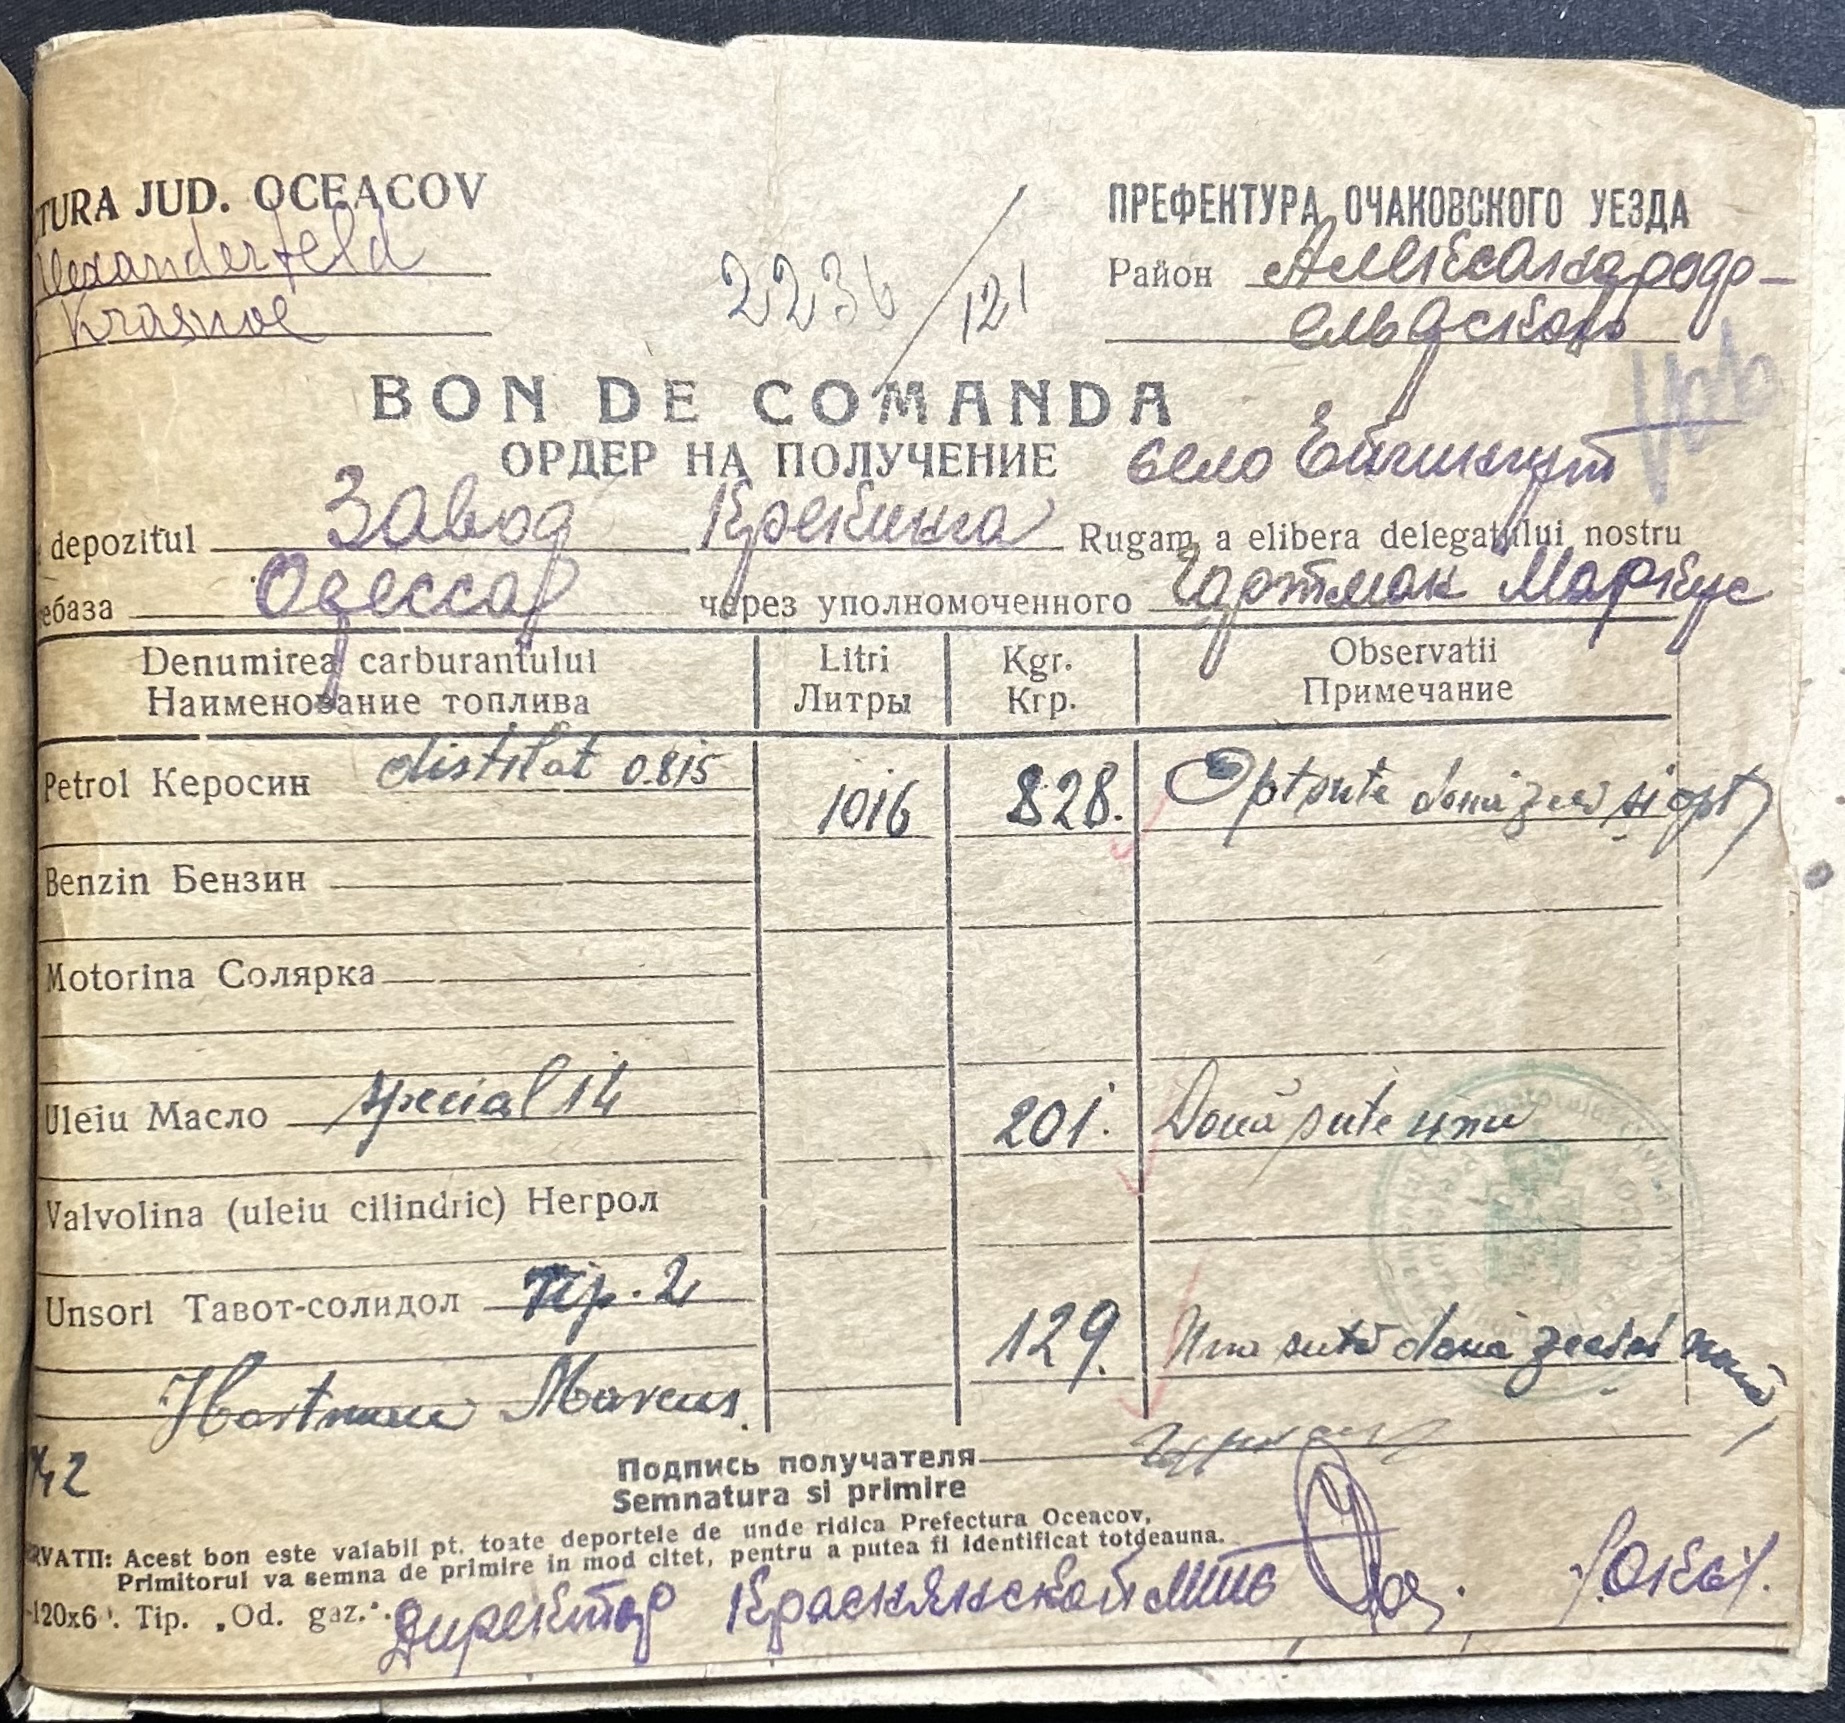 TURA JUD. OCEACOV
ПРЕФЕКТУРА ОЧАКОВСКОГО УЕЗДА
lexanderfeld
2236/121
Район Александроф-
Krasnoe
ельдского
BON DE COMANDA
ОРДЕР НА ПОЛУЧЕНИЕ
село
depozitul Завод Крекинга Rugam a elibera delegatului nostru
ебаза Одесса через уполномоченного Гартман Маркус
Denumirea carburantului Litri Kgr. Observatii
Наименование топлива Литры Кгр. Примечание
Petrol Керосин distilat 0.815 1016 828. Optsute două zeci și opt
Benzin Бензин
Motorina Солярка
Uleiu Масло special 14 201. Două sute unu
Valvolina (uleiu cilindric) Негрол
Unsori Тавот-солидол Tip. 2 129. Una sută două zeci și nouă
Hartman Marcus.
42
Подпись получателя
Semnatura si primire
RVATII: Acest bon este valabil pt. toate deportele de unde ridica Prefectura Oceacov,
Primitorul va semna de primire in mod citet, pentru a putea fi identificat totdeauna.
-120x6 . Tip. „Od. gaz.".
Директор Краснянской МТС